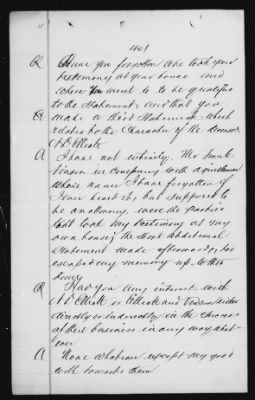 401
Q Have you forgotten who took your
testimony at your house and
when you went to to be qualified
to the Statements and that you
Q make a third Statement which
relates to the Character of the
A I have not entirely. Mr
in Company with a gentleman
whose name I have forgotten if
I ever heard it, but supposed to
be an attorney, were the parties
that took my testimony at my
own house, the Short additional
Statement made afterwards, has
escaped my memory up to this
time
Q Had you any interest with
directly or indirectly in the
of their business in any way what-
ever
A None whatever except my good
will towards them